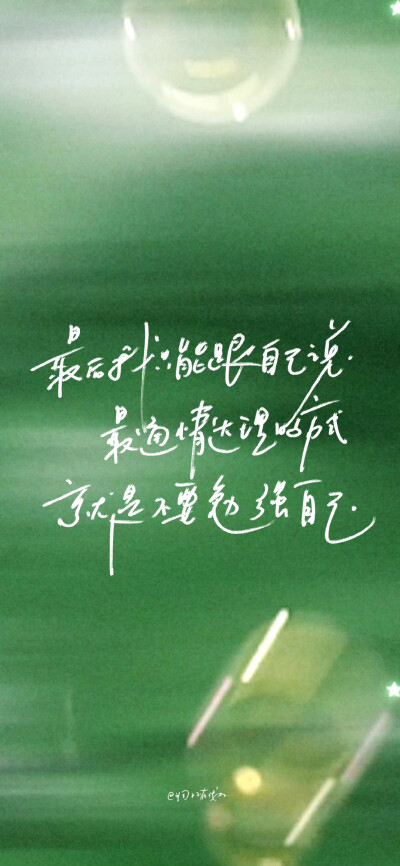 最后我只能跟自己说.
最通情达理的方式
就是不要勉强自己.